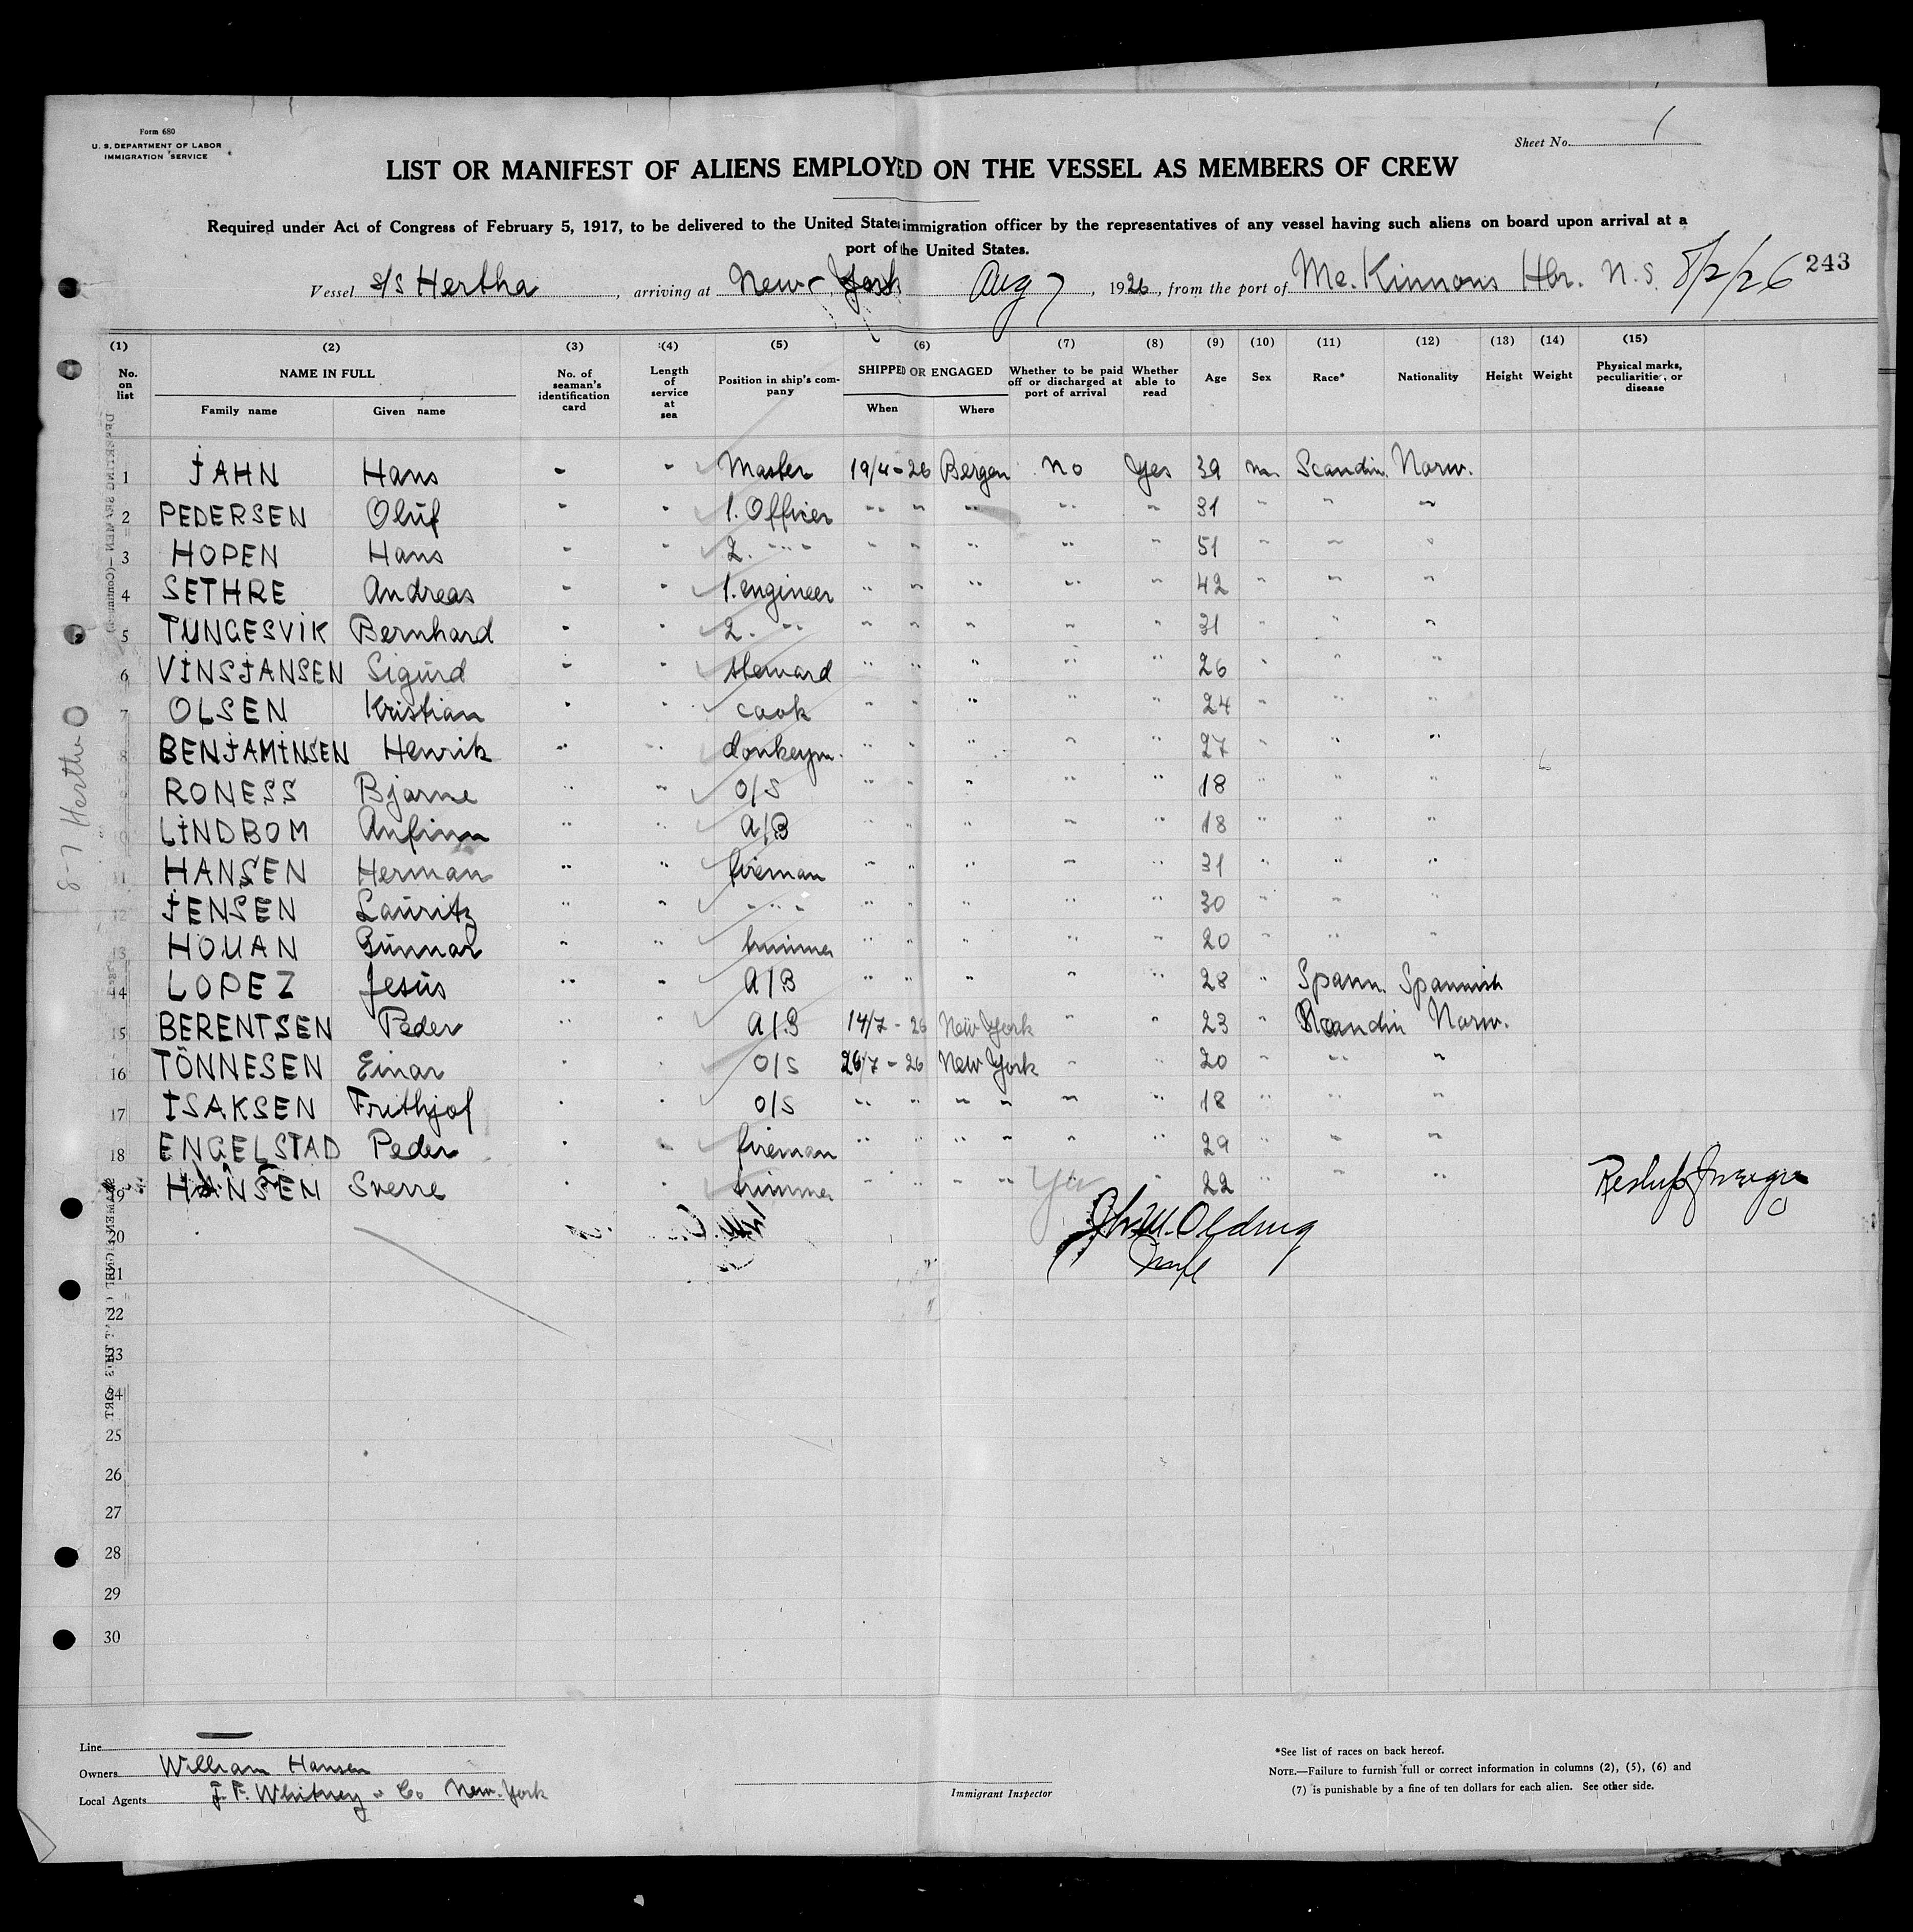 Form 680
U. S. DEPARTMENT OF LABOR
IMMIGRATION SERVICE
Sheet No. 1
LIST OR MANIFEST OF ALIENS EMPLOYED ON THE VESSEL AS MEMBERS OF CREW
Required under Act of Congress of February 5, 1917, to be delivered to the United States immigration officer by the representatives of any vessel having such aliens on board upon arrival at a
port of the United States.
Vessel s/s Hertha, arriving at New York Aug 7, 1926, from the port of Mc. Kinnons Hbr. N.S. 8/2/26 243
(1) (2) (3) (4) (5) (6) (7) (8) (9) (10) (11) (12) (13) (14) (15)
No. on list NAME IN FULL Family name Given name No. of seaman's identification card Length of service at sea Position in ship's company SHIPPED OR ENGAGED When Where Whether to be paid off or discharged at port of arrival Whether able to read Age Sex Race* Nationality Height Weight Physical marks, peculiarities, or disease
1 JAHN Hans - - Master 19/4-26 Bergen no Yes 39 m Scandin. Norw.
2 PEDERSEN Oluf - - 1. Officer " " " " " 31 " " "
3 HOPEN Hans - - 2. " " " " " " 51 " " "
4 SETHRE Andreas - - 1. engineer " " " " " 42 " " "
5 TUNGESVIK Bernhard - - 2. " " " " " " 31 " " "
6 VINSJANSEN Sigurd - - steward " " " " " 26 " " "
7 OLSEN Kristian - - cook " " " " " 24 " " "
8 BENJAMINSEN Henrik " " donkeym. " " " " " 27 " " "
9 RONESS Bjarne " " O/S " " " " " 18 " " "
10 LINDBOM Anfinn " " A/B " " " " " 18 " " "
11 HANSEN Herman " " fireman " " " " 31 " " "
12 JENSEN Lauritz " " " " " " " " 30 " " "
13 HOUAN Gunnar " " trimmer " " " " " 20 " " "
14 LOPEZ Jesus " " A/B " " " " " 28 " Spann. Spannish
15 BERENTSEN Peder " " A/B 14/7 - 26 New York " " 23 " Scandin Norw.
16 TÖNNESEN Einar - - O/S 26/7 - 26 New York " " 20 " " "
17 ISAKSEN Frithjof - - O/S " " " " " " 18 " " "
18 ENGELSTAD Peder - - fireman " " " " " " 29 " " "
19 HANSEN Sverre - - trimmer " " " " Yes " 22 " " "
20
21
22
23
24
25
26
27
28
29
30
8-7 Hertha
Line
Owners William Hansen
Local Agents J. F. Whitney & Co New-York
Immigrant Inspector
*See list of races on back hereof.
NOTE.—Failure to furnish full or correct information in columns (2), (5), (6) and
(7) is punishable by a fine of ten dollars for each alien. See other side.